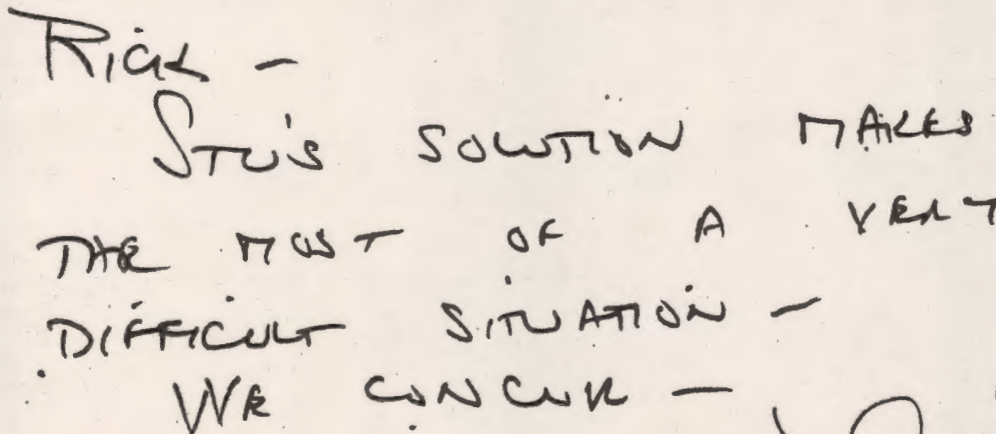 Rick -
Stu's SOLUTION MAKES
THE MOST OF A VERY
DIFFICULT SITUATION -
WE CONCUR -